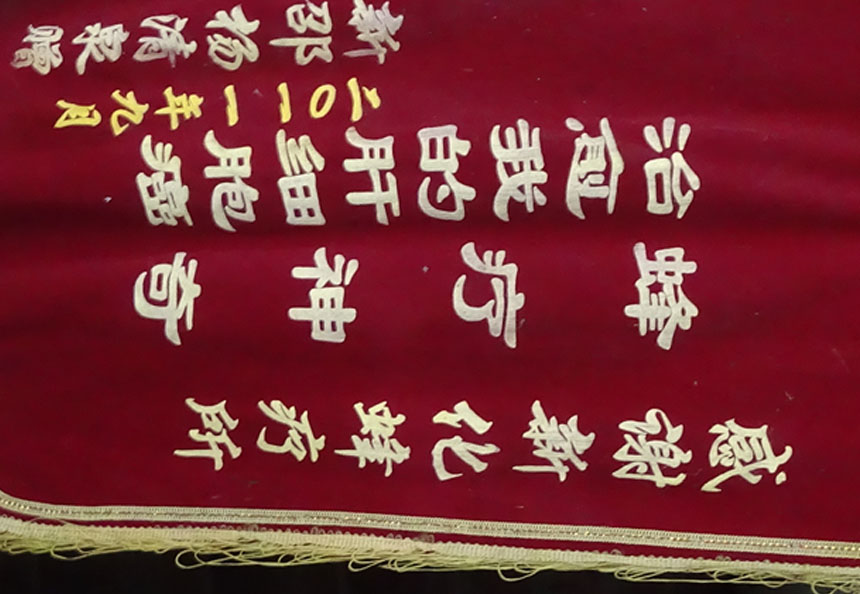 感谢新化蜂疗所
蜂疗神奇
治愈我的肝细胞癌
二〇一一年九月
新邵杨清泉赠